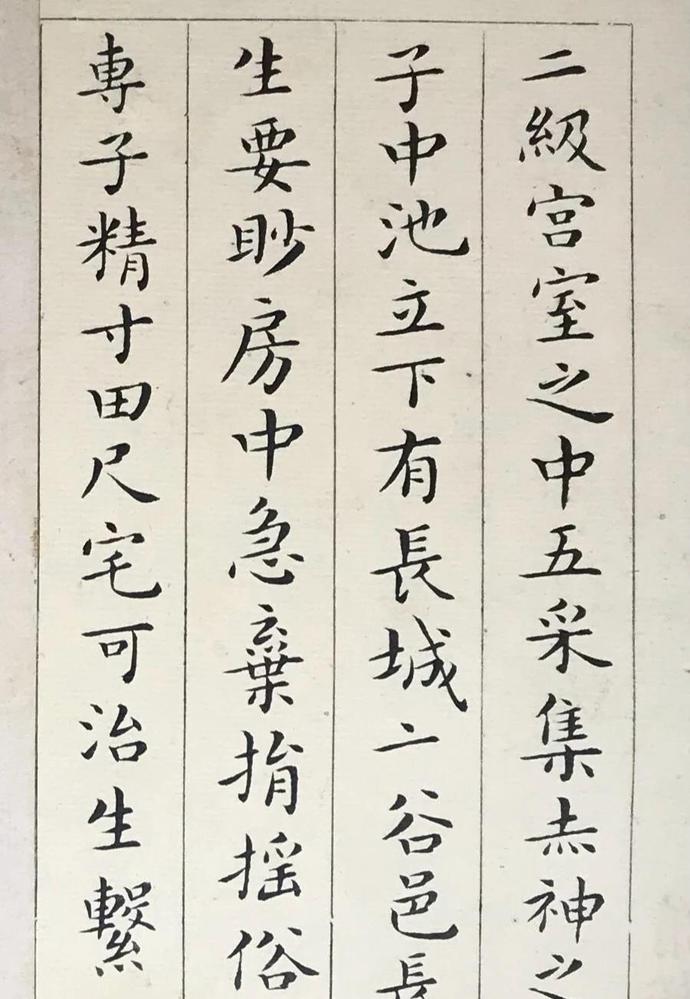 二級宫室之中五采集赤神之
子中池立下有長城亠谷邑長
生要眇房中急棄捐揺俗
専子精寸田尺宅可治生繫